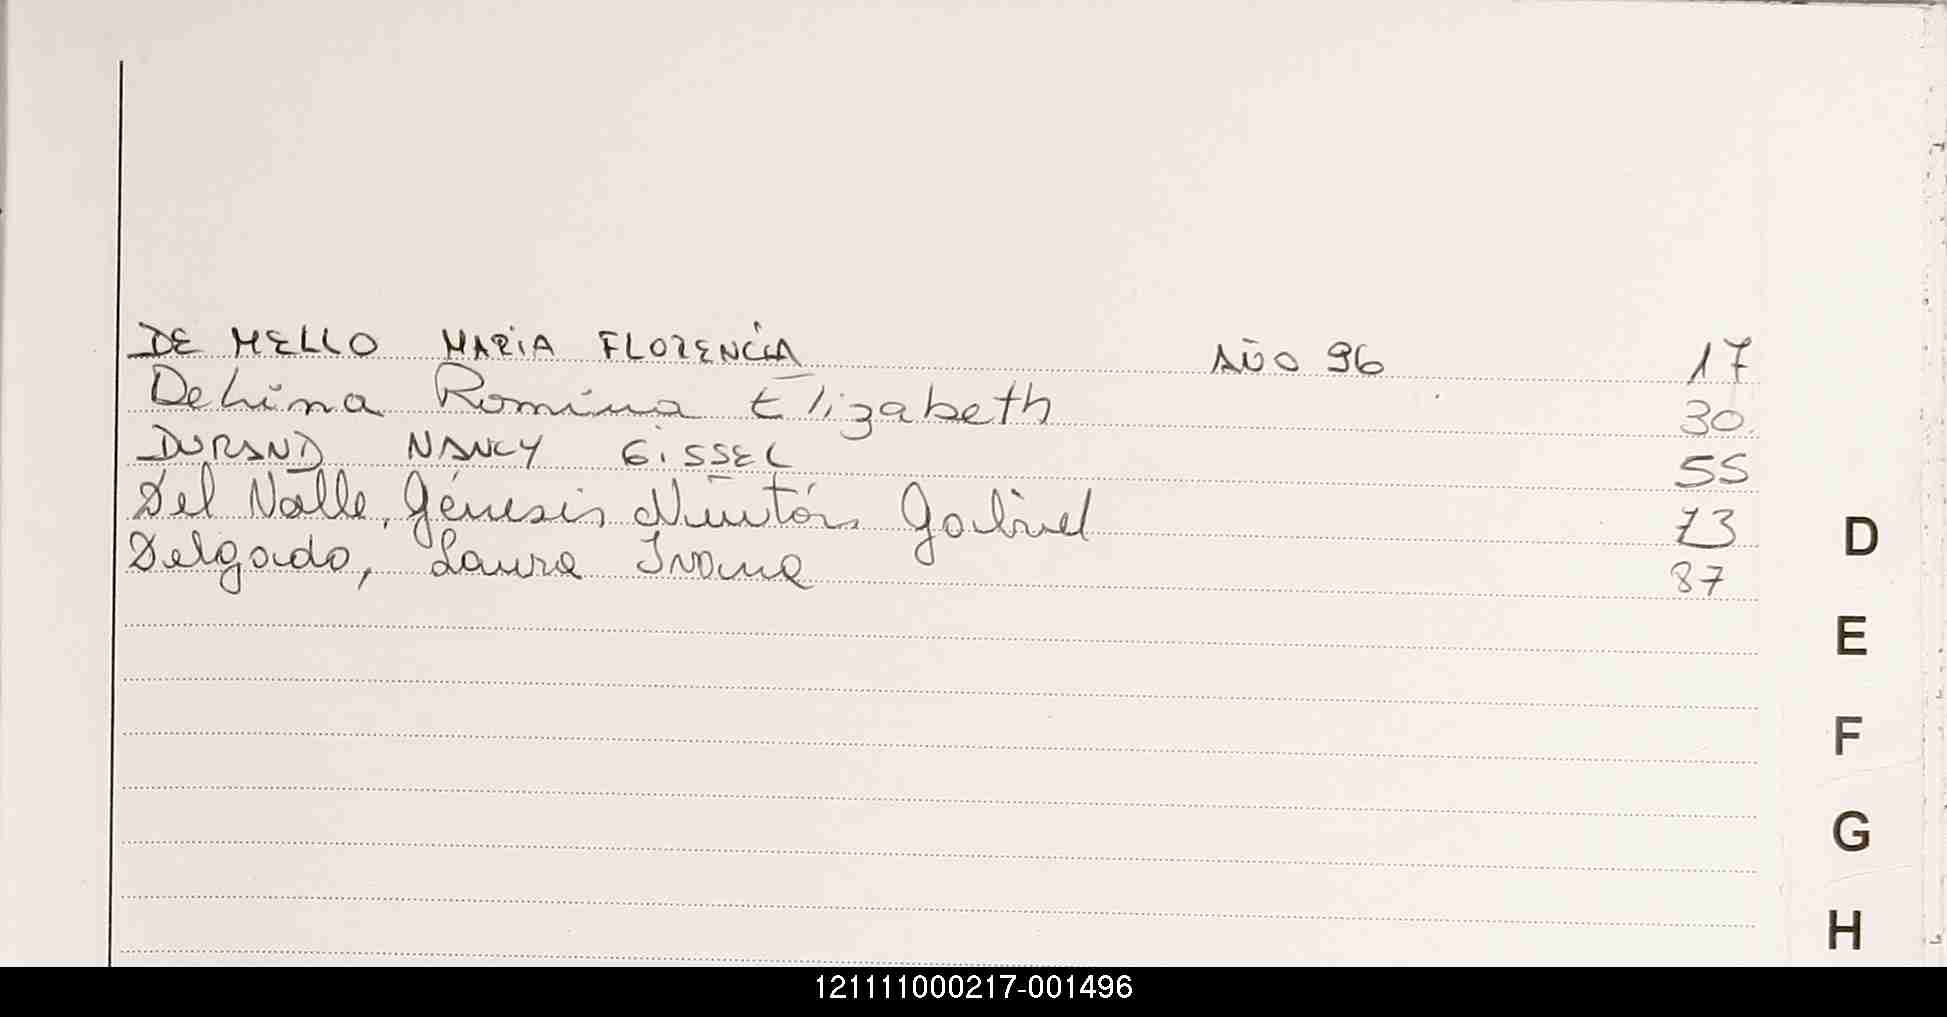 DE MELLO MARIA FLORENCIA AÑO 96 17
Romina Elizabeth 30
DURAND NANCY GISSEL 55
Del Valle, Génesis Gabriel 73
Delgado, Laura Ivana 87
D
E
F
G
H
121111000217-001496